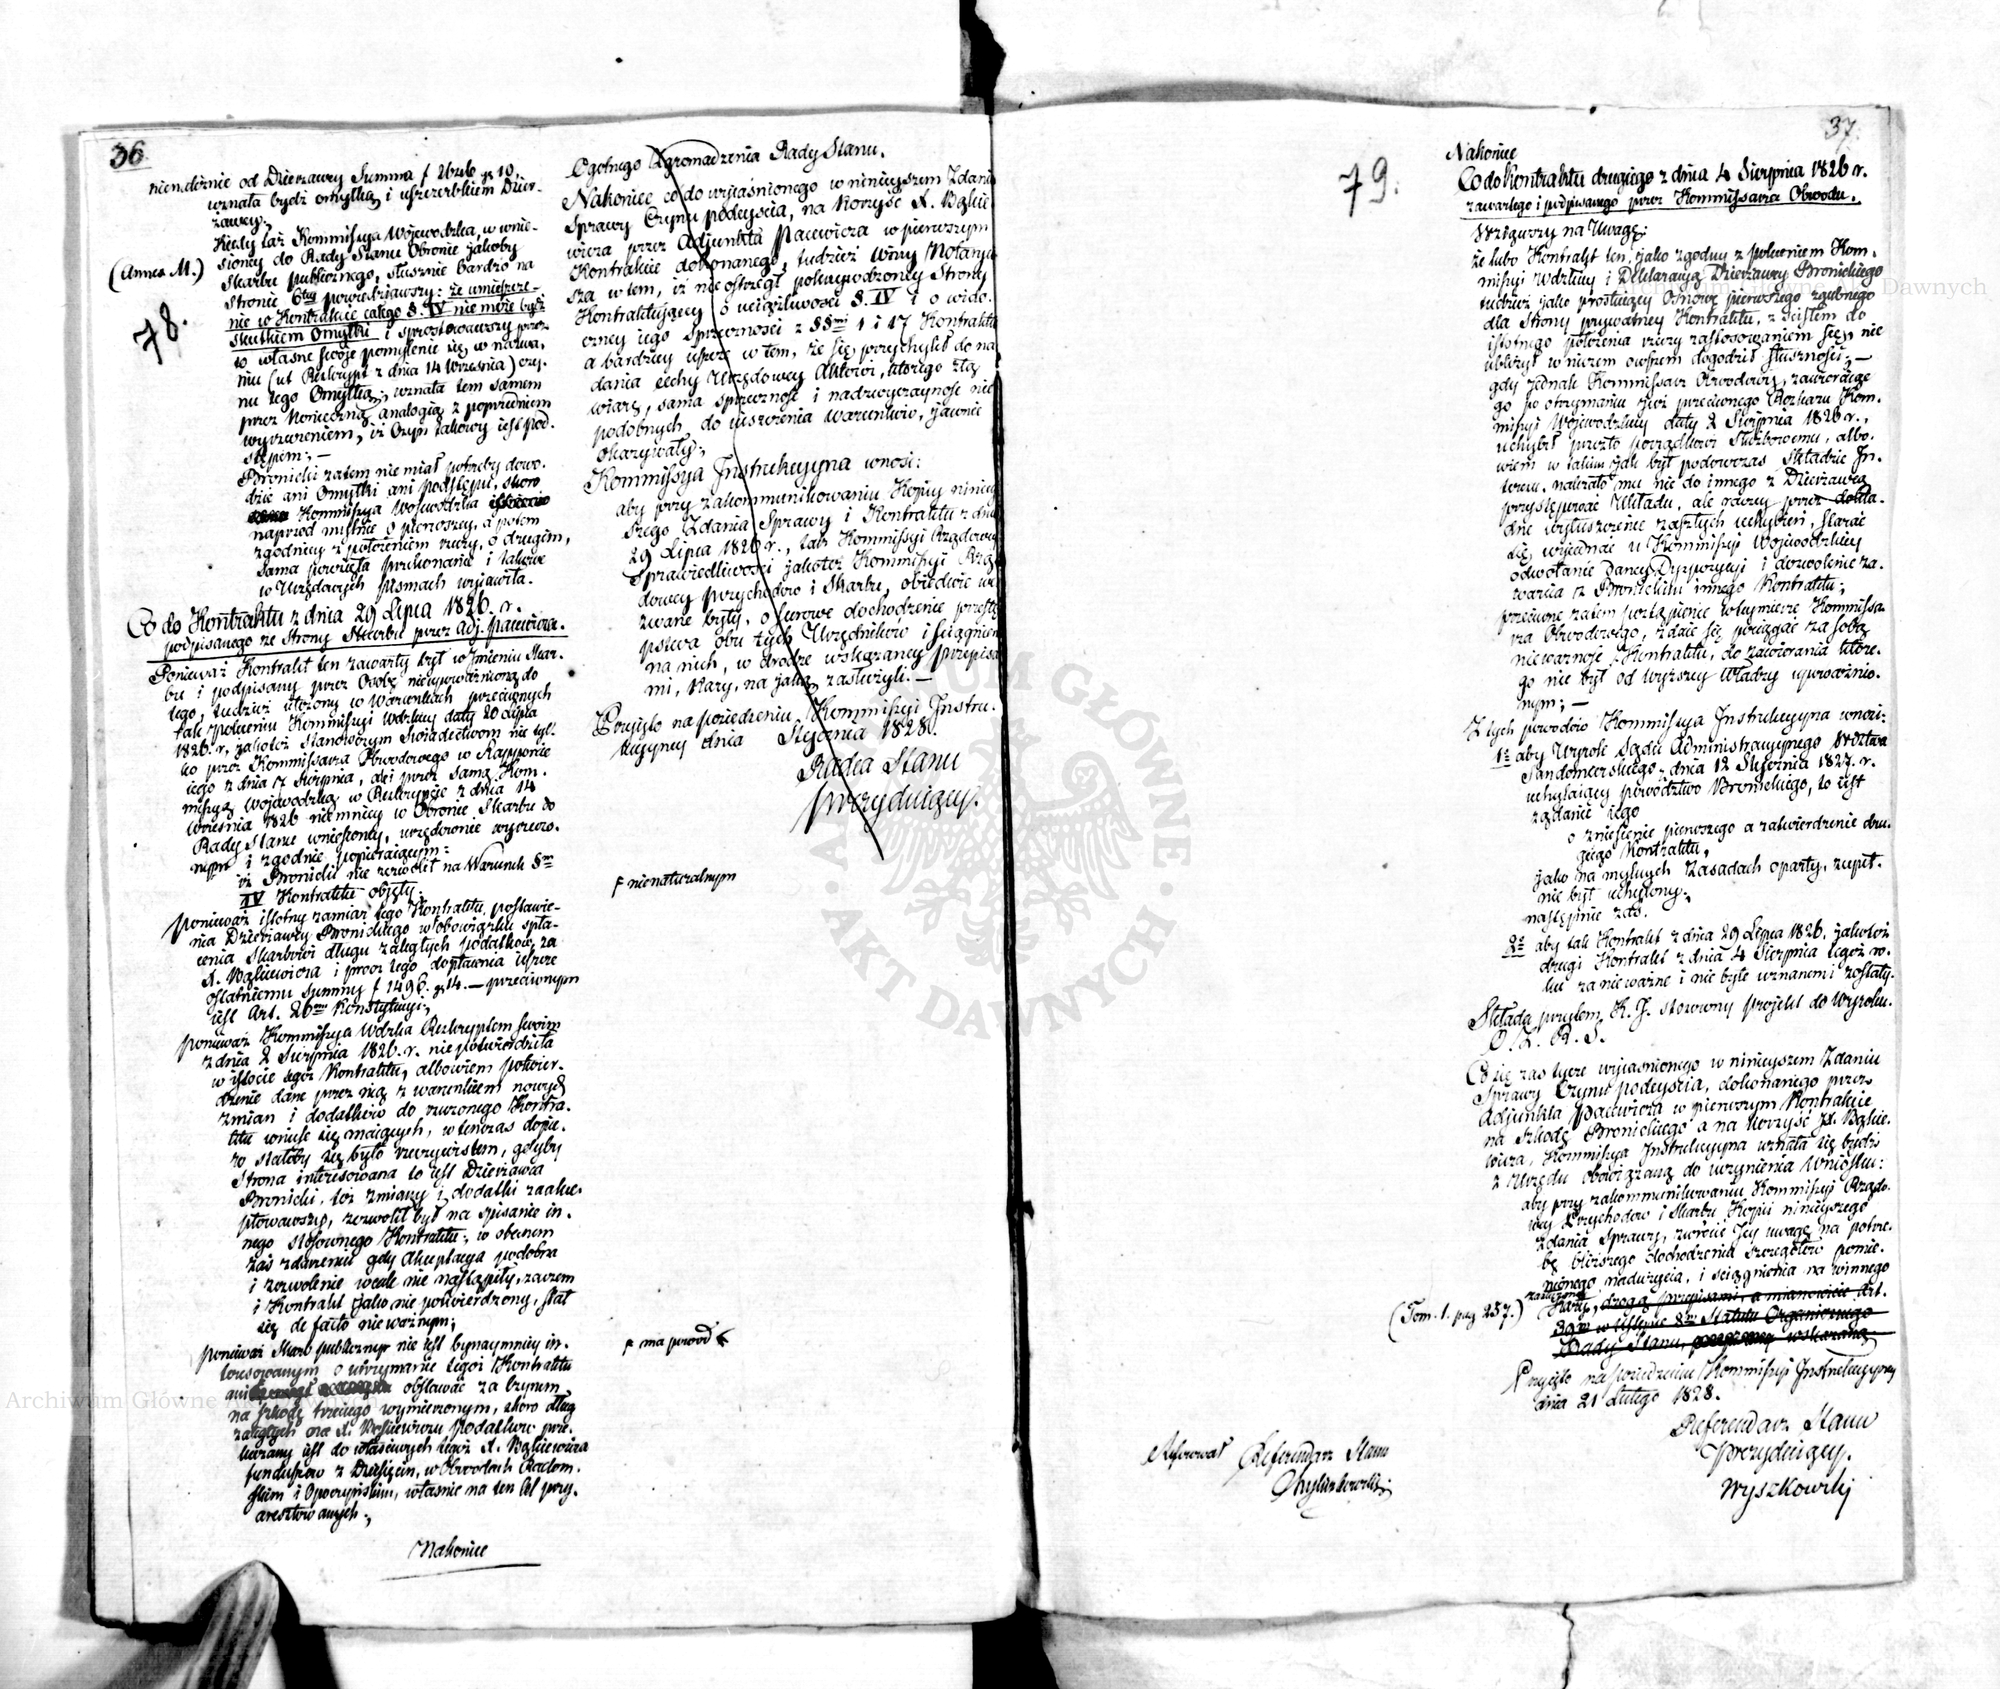 36
nienależnie od Dzierżawcy Summa f 2626 gr 10.
uznała bydź omyłką i uszczerbkiem Dzier-
żawcy.
Kiedy taż Kommissya Wojewodzka, w wnie-
sioney do Rady Stanu Obronie jakoby
Skarbu publicznego, słusznie bardzo na
stronie 6tey powiedziawszy: że umieszcze-
nie w Kontrakcie całego §. IV nie może bydź
skutkiem Omyłki i sprostowawszy przez
to własne swoje pomylenie się w nazwa-
niu (ut Reskrypt z dnia 14 Września) czy-
nu tego Omyłką; uznała tem samem
przez konieczną analogią z poprzedniem
wyrzeczeniem, iż Czyn takowy iest pod-
stępem; —
(Annex M.)
78.
Bronicki zatem nie miał potrzeby dowo-
dzić ani Omyłki ani podstępu, skoro
Kommissya Wojewodzka
naprzod mylnie o pierwszey, a potem
zgodniey z położeniem rzeczy, o drugim,
sama powzięła przekonanie i takowe
w Urzędowych pismach wyjawiła.
Co do Kontraktu z dnia 29 Lipca 1826. r.
podpisanego ze Strony Skarbu przez Adj. Pacewicza.
Ponieważ Kontrakt ten zawarty był w Imieniu Skar-
bu i podpisany przez Osobę nieupoważnioną do
tego, tudzież ułożony w Warunkach przeciwnych
tak poleceniu Kommissyi Wdzkiey daty 20 Lipca
1826. r. jakoteż stanowczym Świadectwom nie tyl-
ko przez Kommissarza Obwodowego w Rapporcie
iego z dnia 17 Sierpnia, ale i przez samą Kom-
missyą Wojewodzką w Reskrypcie z dnia 14
Września 1826 niemniey w Obronie Skarbu do
Rady Stanu wniesioney, urzędownie wyrzeczo-
nym i zgodnie popieraiącym:
iż Bronicki nie zezwolił na Warunek §m
IV Kontraktu objęty;
Ponieważ istotny zamiar tego Kontraktu, postawie-
nia Dzierżawcy Bronickiego w obowiązku spła-
cenia Skarbowi długu zaległych podatków za
X. Bąkiewicza i prócz tego dopłacenia ieszcze
ostatniemu Summy f 1496. gr 14. — przeciwnym
iest Art. 26m Konstytucyi;
Ponieważ Kommissya Wdzka Reskryptem swoim
z dnia 2 Sierpnia 1826. r. nie potwierdziła
w istocie tegoż Kontraktu, albowiem potwier-
dzenie dane przez nią z warunkiem nowych
zmian i dodatków do rzeczonego Kontra-
ktu wnieść się maiących, wtenczas dopie-
ro stałoby się było rzeczywistem, gdyby
Strona interesowana to iest Dzierżawca
Bronicki, też zmiany i dodatki zaakce-
ptowawszy, zezwolił był na spisanie in-
nego stosownego Kontraktu; w obecnem
zaś zdarzeniu gdy Akceptacya podobna
i zezwolenie wcale nie nastąpiły, zaczem
i Kontrakt jako nie potwierdzony, stał
się de facto nieważnym;
Ponieważ Skarb publiczny nie iest bynaymniey in-
teresowanym o utrzymanie tegoż Kontraktu
ani obstawać za Czynem
na szkodę trzeciego wymierzonym, skoro dług
zaległych od X. Bąkiewicza Podatków prze-
kazany iest do właściwych tegoż X. Bąkiewicza
funduszów z Dziesięcin, w Obwodach Radom-
skim i Opoczyńskim, właśnie na ten cel przy-
aresztowanych;
Nakoniec
Ogolnego Zgromadzenia Rady Stanu.
Nakoniec co do wyjaśnionego w ninieyszem Zdaniu
Sprawy Czynu podeyścia, na Korzyść X. Bąkie-
wicza przez Adjunkta Pacewicza w pierwszym
Kontrakcie dokonanego, tudzież Winy Notaryu-
sza w tem, iż nie ostrzegł pokrzywdzoney Strony
Kontraktuiącey o uciążliwości §. IV i o wido-
czney iego sprzeczności z §§mi 1 i 17 Kontraktu
a bardziey ieszcze w tem, że się przychylił do na-
dania cechy Urzędowey Aktowi, którego złą
wiarę, sama sprzeczność i nadzwyczayność nie
podobnych do uiszczenia warunków, jawnie
okazywały;
Kommissya Instrukcyyna wnosi:
aby przy zakommunikowaniu Kopiy niniey-
szego Zdania Sprawy i Kontraktu z dnia
29 Lipca 1826 r., tak Kommissyi Rządowey
Sprawiedliwości jakoteż Kommissyi Rzą-
dowey Przychodow i Skarbu, obiedwie we-
zwane były, o surowe dochodzenie przestę-
pstwa obu tych Urzędników i ściągnienie
na nich, w drodze wskazaney przepisa-
mi, Kary, na jaką zasłużyli. —
Przyięto na posiedzeniu Kommissyi Instru-
kcyyney dnia Stycznia 1828.
Radca Stanu
Prezyduiący.
f nienaturalnym
f ma powod
37.
79.
Nakoniec
Co do Kontraktu drugiego z dnia 4 Sierpnia 1826 r.
zawartego i podpisanego przez Kommissarza Obwodu.
Wziąwszy na Uwagę:
że lubo Kontrakt ten, jako zgodny z poleceniem Kom-
missyi Wdzkiey i Deklaracyą Dzierżawcy Bronickiego
tudzież jako prostuiący Osnowę pierwszego zgubnego
dla Strony prywatney Kontraktu, z ścisłem do
istotnego położenia rzeczy zastosowaniem się, nie
ubliżył w niczem owszem dogodził słuszności; —
gdy jednak Kommissarz Obwodowy, zawieraiąc
go po otrzymaniu iuż przeciwnego Rozkazu Kom-
missyi Wojewodzkiey daty 2 Sierpnia 1826 r.,
uchybił przeto porządkowi Służbowemu, albo-
wiem w takim jak był podowczas składzie In-
teresu, należało mu nie do innego z Dzierżawcą
przystępować Układu, ale raczey przez dokła-
dne wyłuszczenie zaszłych uchybień, starać
się, wyiednać u Kommissyi Wojewodzkiey
odwołanie daney Dyspozycyi i dozwolenie za-
warcia z Bronickim innego Kontraktu;
przeciwne zatem postąpienie w tey mierze Kommissa-
rza Obwodowego, zdaie się pociągać za sobą
nieważność Kontraktu, do zawierania które-
go nie był od wyższey Władzy upoważnio-
nym; —
Z tych powodów Kommissya Instrukcyyna wnosi:
1e aby Wyrok Sądu Administracyynego Wdztwa
Sandomierskiego z dnia 12 Stycznia 1827. r.
uchylaiący powództwo Bronickiego, to iest
żądanie iego
o zniesienie pierwszego a zatwierdzenie dru-
giego Kontraktu,
jako na mylnych Zasadach oparty, zupeł-
nie był uchylony;
następnie zaś.
2e aby tak Kontrakt z dnia 29 Lipca 1826. jakoteż
drugi Kontrakt z dnia 4 Sierpnia tegoż ro-
ku za nieważne i nie byłe uznanemi zostały.
Składa przytem K. I. stosowny projekt do Wyroku.
O. Z. R. S.
Co się zaś tycze wyjaśnionego w ninieyszem Zdaniu
Sprawy Czynu podeyścia, dokonanego przez
Adjunkta Pacewicza w pierwszym Kontrakcie
na szkodę Bronickiego a na korzyść X. Bąkie-
wicza, Kommissya Instrukcyyna uznała się bydź
z Urzędu obowiązaną do uczynienia Wniosku:
aby przy zakommunikowaniu Kommissyi Rządo-
wey Przychodow i Skarbu, Kopii ninieyszego
Zdania Sprawy, zwrócić Jey uwagę na potrze-
bę bliższego dochodzenia szczegółów pomie-
nionego nadużycia, i ściągnienia na winnego
zasłużoney
Kary, drogą przepisami a mianowicie Art.
39m w Ustępie 8m Statutu Organicznego
Rady Stanu, wskazaną
(Tom. 1. pag 257.)
Przyięto na posiedzeniu Kommissyi Instrukcyyney
dnia 21 Lutego 1828.
Referendarz Stanu
Prezyduiący.
Wyszkowski
Referował Referendarz Stanu
Archiwum Główne Akt Dawnych
Archiwum Główne Akt Dawnych
ARCHIWUM GŁÓWNE · AKT DAWNYCH ·